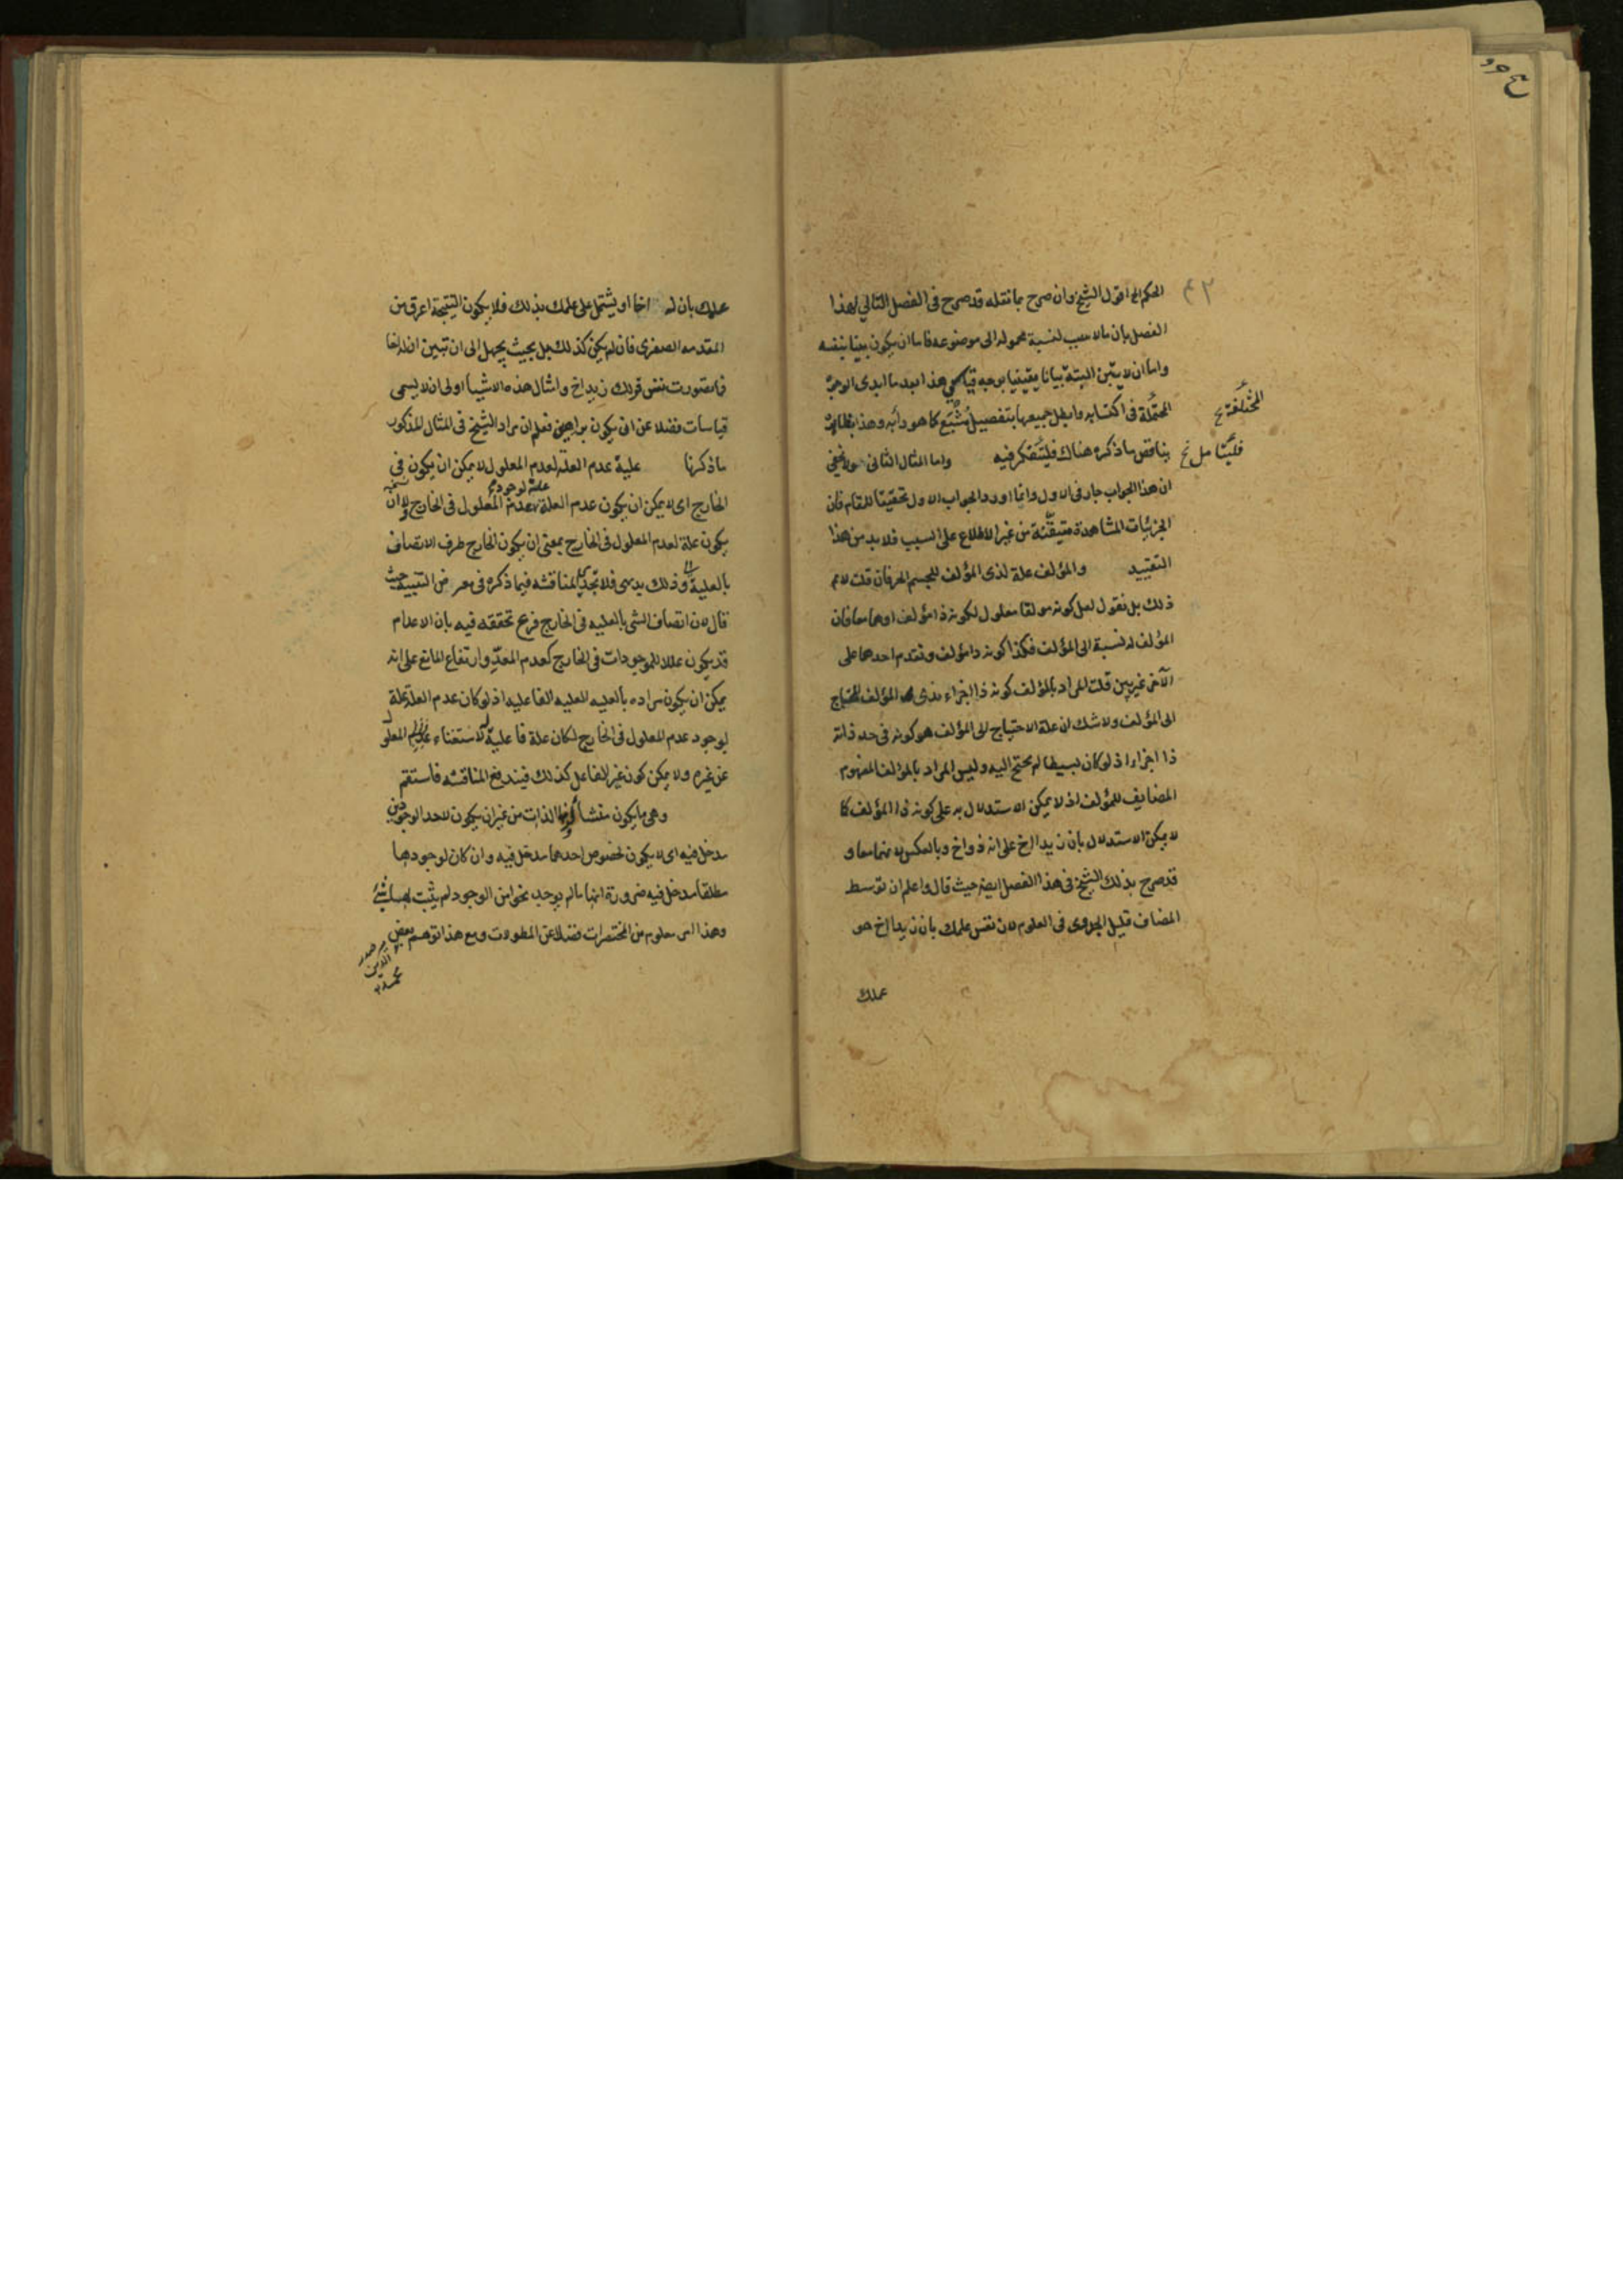 الحكم الخ اقول الشيخ وان صرح بما نقله قد صرح فى الفصل التالي لهذا
الفصل بان ما لا سبب لنسبة محموله الى موضوعه فاما ان يكون بينا بنفسه
واما ان لا يتبين البتة بيانا يقينيا بوجه قياسي هذا بعد ما ابدى الوجوه
المحتملة فى اكتسابه وابطل جميعها بتفصيل مشبع كما هو دأبه وهذا بظاهره
المختلفة خ
يناقض ما ذكره هناك فليتفكر فيه واما المثال الثانى ولا يخفى
فليتامل خ
ان هذا الجواب جار فى الاول وانما اورد الجواب الاول تحقيقا للمقام فان
الجزئيات المشاهدة متيقنة من غير الاطلاع على السبب فلا بد من هذا
التقييد والمؤلف علة لذى المؤلف للجسم الخ فان قلت لا نم
ذلك بل نقول لعل كونه مولفا معلول لكونه ذا مؤلف او هما معا فان
المؤلف له نسبة الى المؤلف فكذا كونه ذا مؤلف وتقدم احدهما على
الآخر غير بين قلت المراد بالمؤلف كونه ذا اجزاء المؤلف المحتاج
الى المؤلف ولا شك ان علة الاحتياج الى المؤلف هو كونه فى حد ذاته
ذا اجزاء اذ لو كان بسيطا لم يحتج اليه وليس المراد بالمؤلف المفهوم
المضايف للمؤلف اذ لا يمكن الاستدلال به على كونه ذا المؤلف كما
لا يمكن الاستدلال بان زيدا اخ على انه ذو اخ وبالعكس لانهما معا و
قد صرح بذلك الشيخ فى هذا الفصل ايضا حيث قال واعلم ان توسط
المضاف قليل الجدوى فى العلوم لان نفس علمك بان زيدا اخ هو
علمك
علمك بان له اخا او يشتمل على علمك بذلك فلا يكون النتيجة اعرف من
المقدمه الصغرى فان لم يكن كذلك بل بحيث يجهل الى ان تبين ان له اخا
فما تصورت نفس قولك زيد اخ وامثال هذه الاشياء اولى ان لا يسمى
قياسات فضلا عن ان يكون براهين فعلم ان مراد الشيخ فى المثال المذكور
ما ذكرنا علية عدم العلة لعدم المعلول لا يمكن ان يكون في
الخارج اى لا يمكن ان يكون عدم العلة علة لوجود عدم المعلول فى الخارج ولا ان
يكون علة لعدم المعلول فى الخارج بمعنى ان يكون الخارج ظرف الاتصاف
بالعلية وذلك بديهى فلا تجدى المناقشه فيما ذكره فى معرض التنبيه حيث
قال لان اتصاف الشى بالعليه فى الخارج فرع تحققه فيه بان الاعدام
قد يكون عللا للموجودات فى الخارج كعدم المعدّ وارتفاع المانع على انه
يمكن ان يكون مراده بالعليه العليه الفاعليه اذ لو كان عدم العلة علة
لوجود عدم المعلول فى الخارج لكان علة فاعلية لاستغناء عدم المعلول
عن غيره ولا يمكن كون غير الفاعل كذلك فيندفع المناقشه فاستقم
وهى ما يكون منشأ لزومها الذات من غير ان يكون لاحد الوجودين
مدخل فيه اى لا يكون لخصوص احدهما مدخل فيه وان كان لوجودها
مطلقا مدخل فيه ضرورة انها ما لم يوجد نحوا من الوجود لم يثبت لها شئ
وهذا امر معلوم من المختصرات فضلا عن المطولات ومع هذا توهم بعض
مير صدر
الدين
محمد